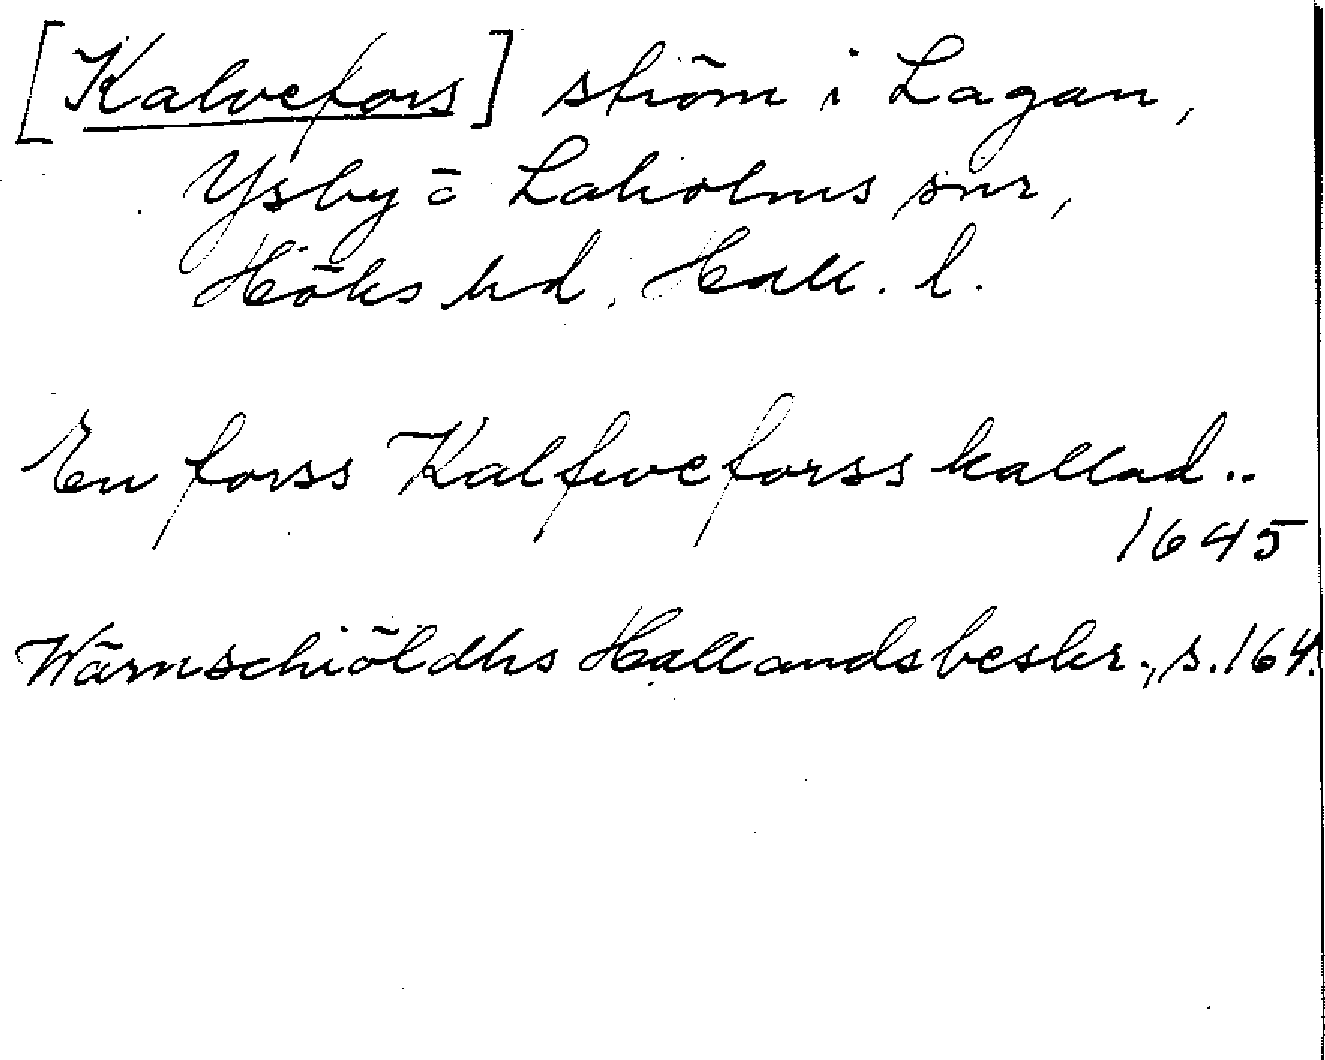 [Kalvefors] ström i Lagan,
Ysby o Laholms snr,
Höks hd, Hall. l.
En forss Kalfweforss kallad..
1645
Wärnschiöldhs Hallandsbeskr., s. 164.